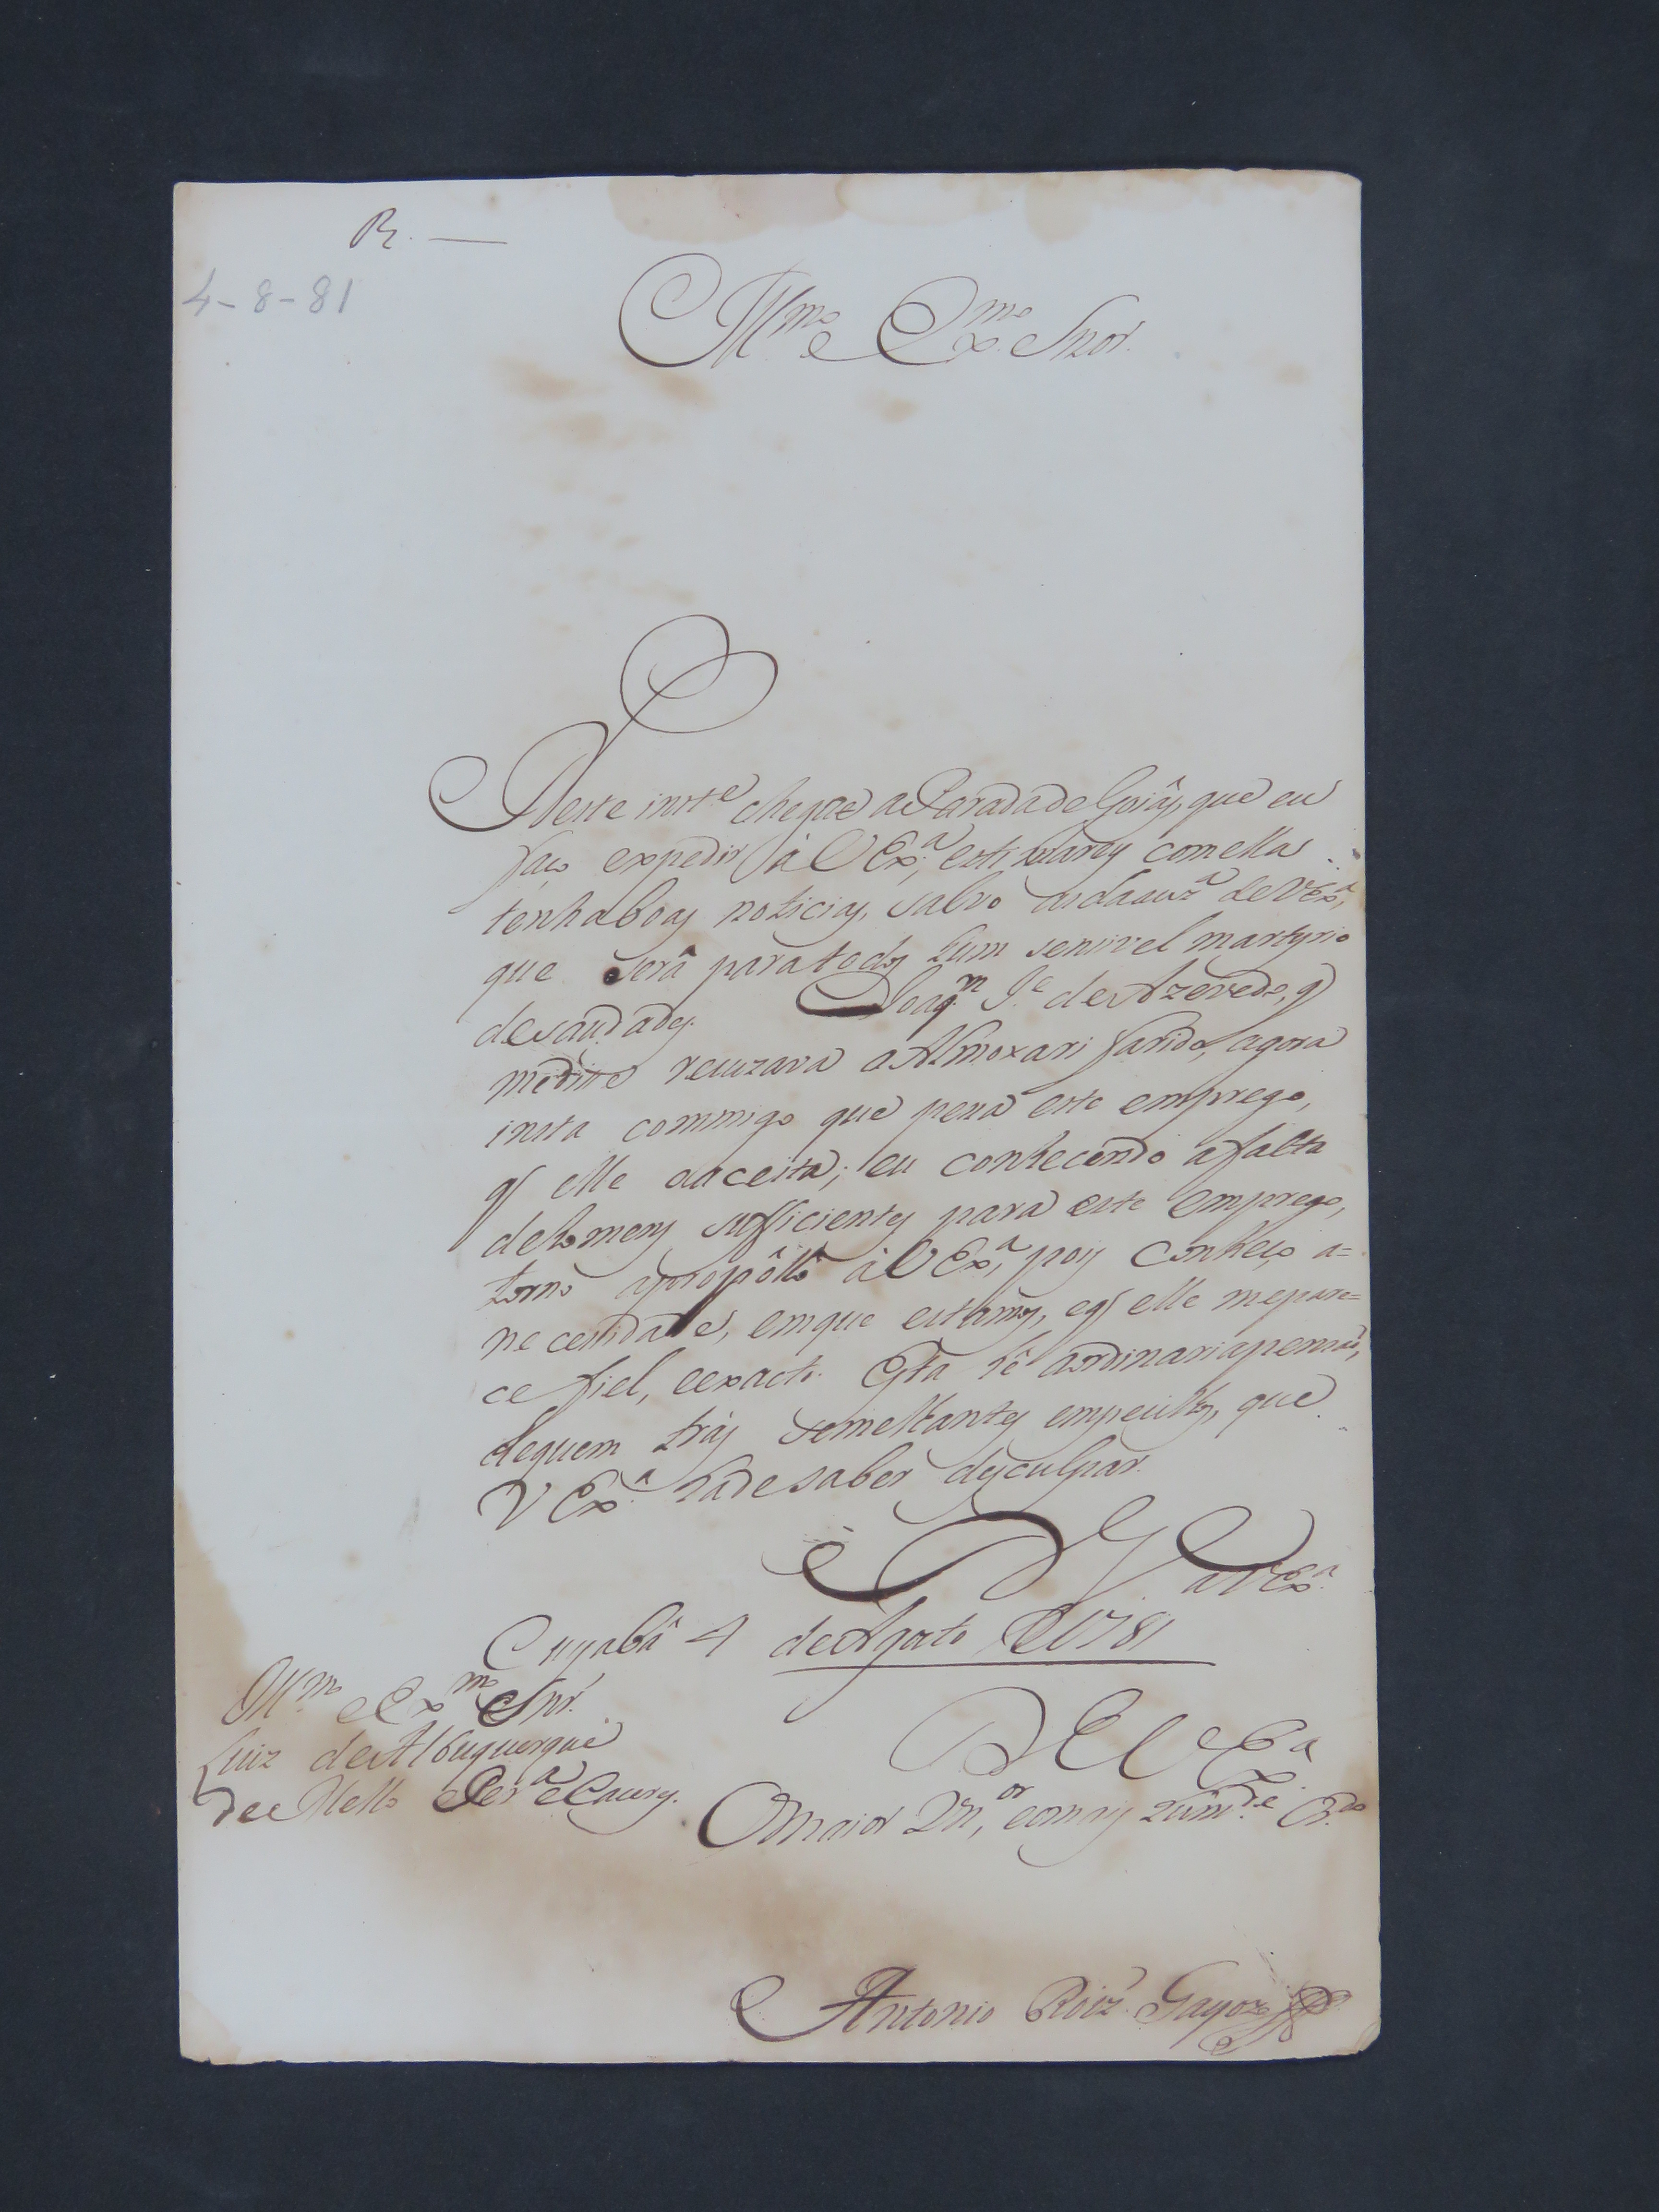 R. —
4-8-81
Illmo e Exmo Snor.
Neste inste chega a Parada de Goiás, que eu
faço expedir á V Exa, estimarey com ella
tenha boas noticias, salvo as da auza de V Exa,
que será para todos hum sensivel martyrio
de saudades. Joaqm Je de Azevedo, q
me disse recuzava o Almoxarifarido, agora
insta commigo que pera este emprego,
q elle o aceita; eu conhecendo a falta
de homens sufficientes para este emprego,
torno a propôllo á V Exa, pois conheço a=
necessidade, em que estamos, e q elle me pare=
ce fiel, e exacto. Esta hé a ordinaria pensaõ,
de quem tráz semelhantes empenhos, que
V Exa hade saber desculpar.
D G a V Exa
Cuyabá 4 de Agosto de 1781
Illmo e Exmo Snr.
Luiz de Albuquerque
de Mello Pera e Caceres.
De V Exa
O maior Vor, e o mais humde Cdo
Antonio Roiz Gayozo